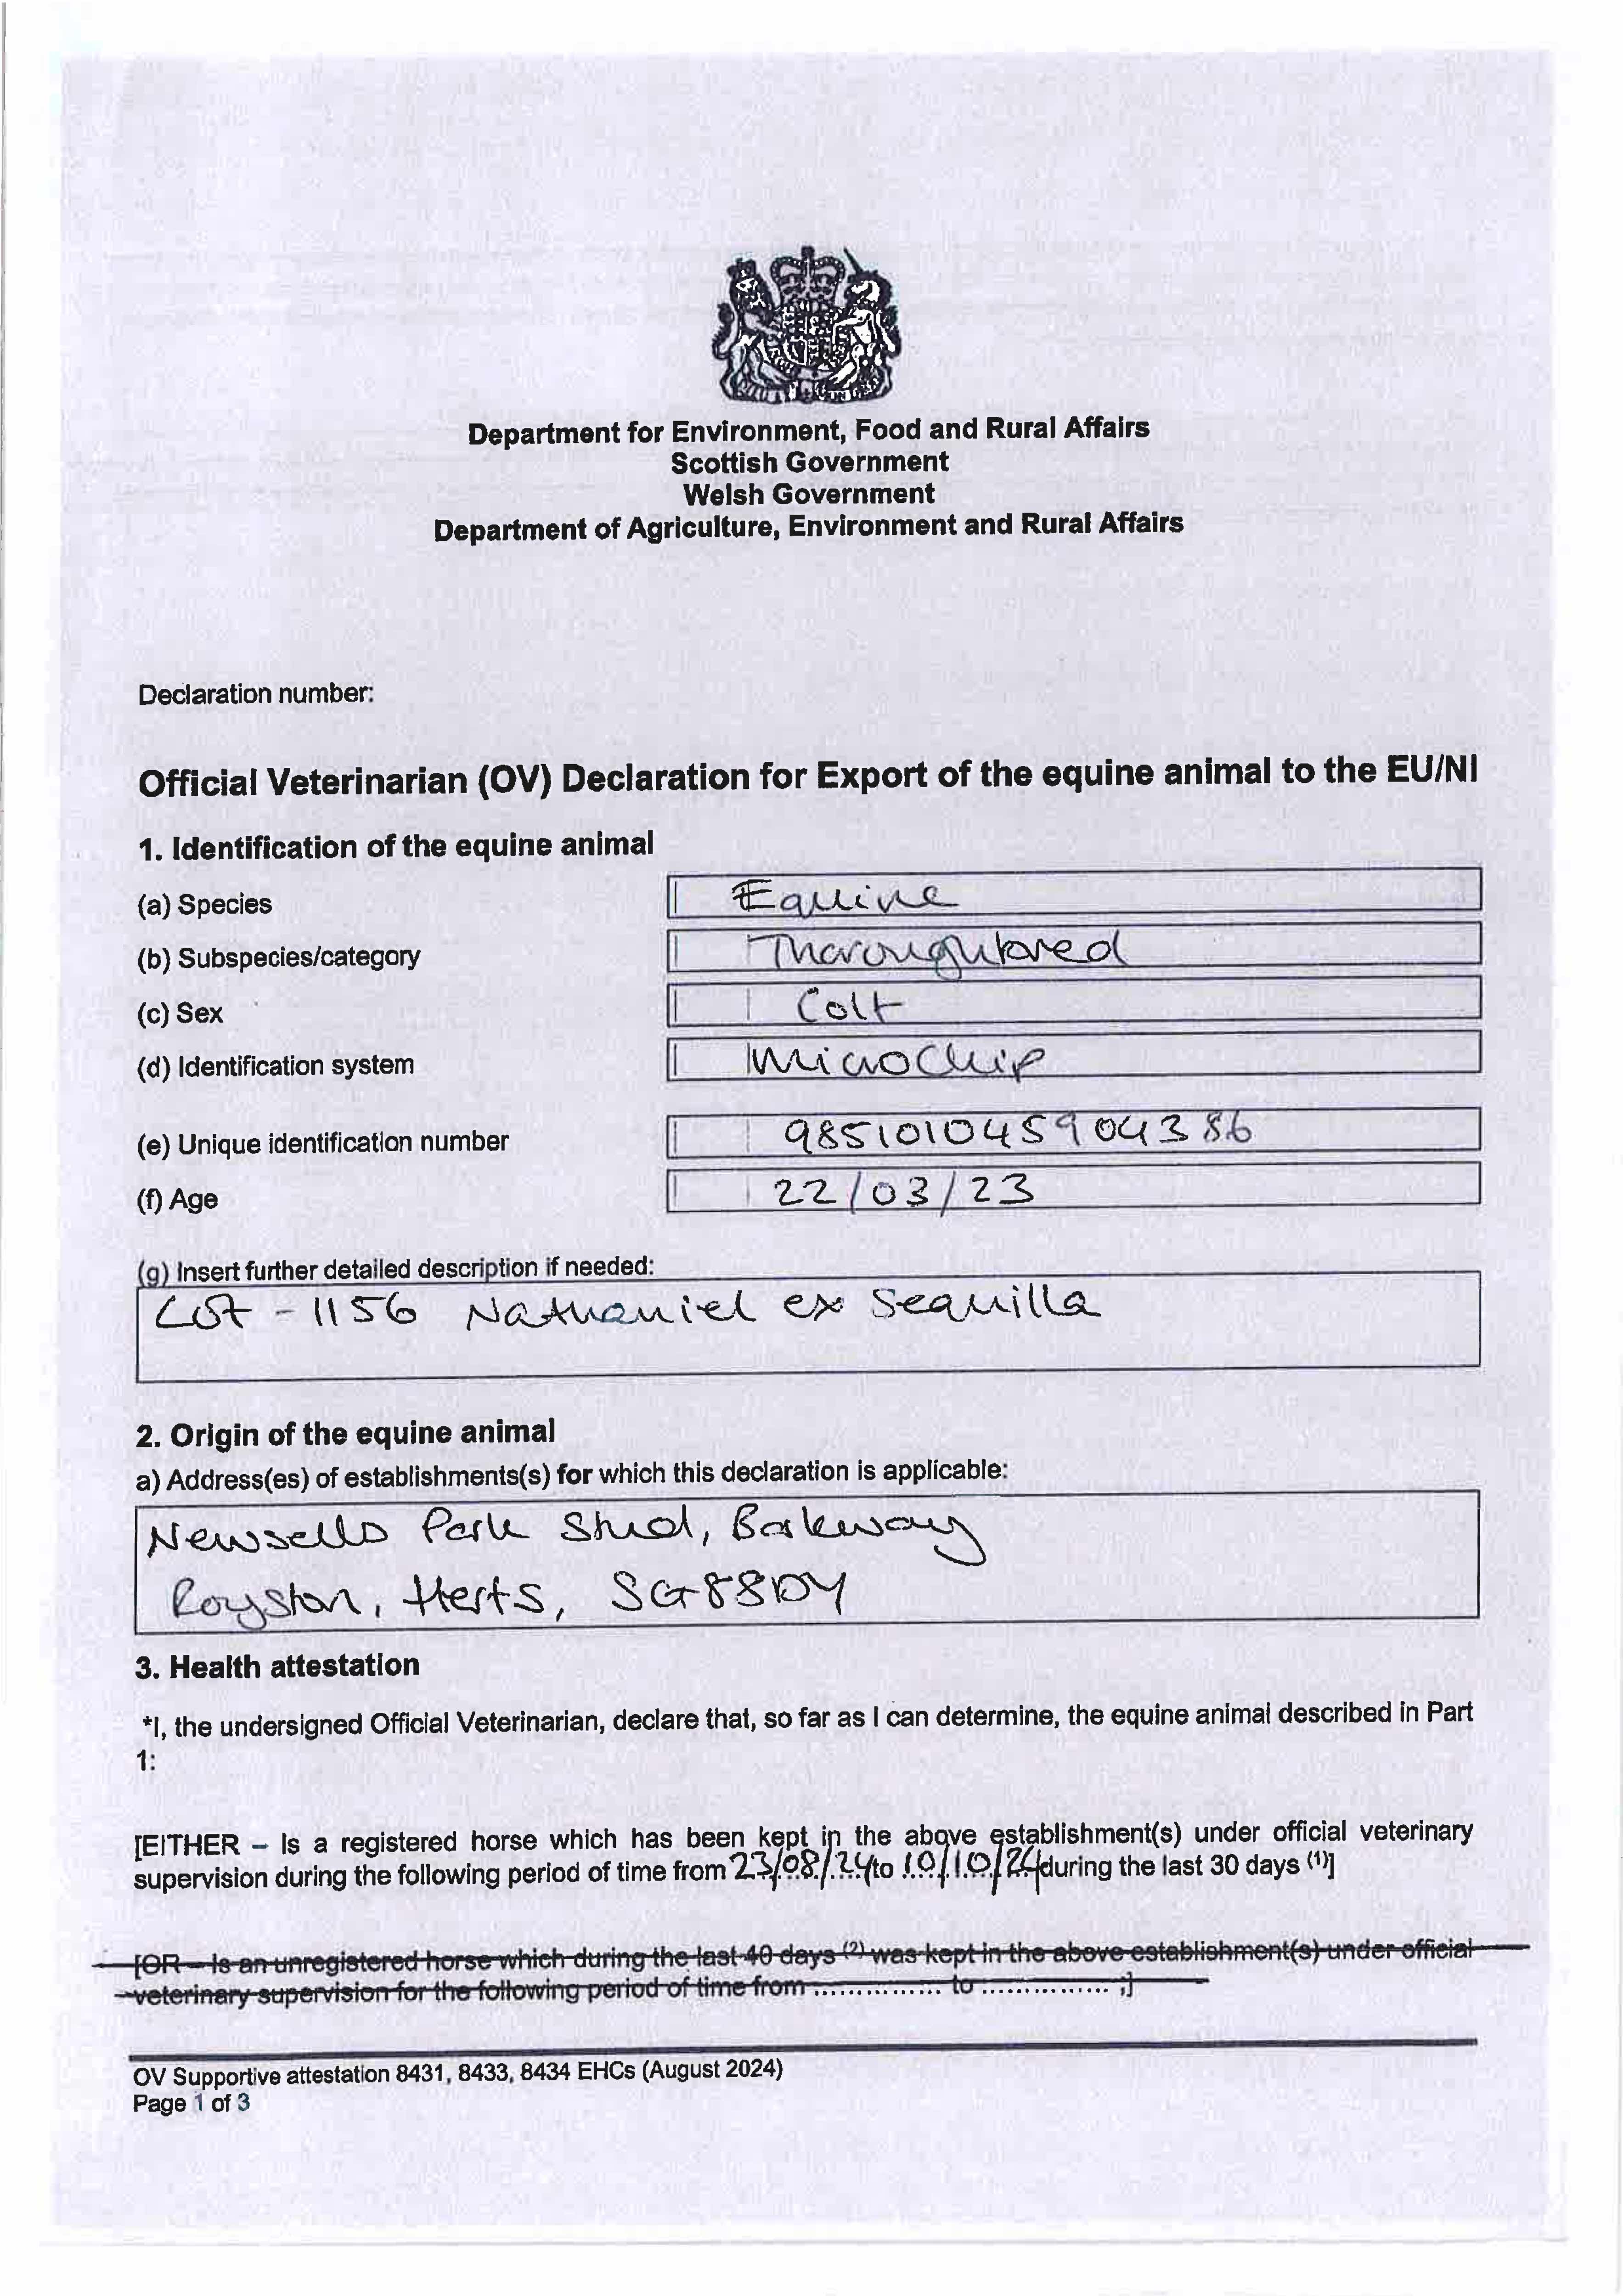 Department for Environment, Food and Rural Affairs
Scottish Government
Welsh Government
Department of Agriculture, Environment and Rural Affairs
Declaration number:
Official Veterinarian (OV) Declaration for Export of the equine animal to the EU/NI
1. Identification of the equine animal
(a) Species Equine
(b) Subspecies/category Thoroughbred
(c) Sex Colt
(d) Identification system Microchip
(e) Unique identification number 985101045904386
(f) Age 22/03/23
(g) Insert further detailed description if needed:
Lot - 1156 Nathaniel ex Sequilla
2. Origin of the equine animal
a) Address(es) of establishments(s) for which this declaration is applicable:
Newsells Park Stud, Barkway
Royston, Herts, SG88DY
3. Health attestation
*I, the undersigned Official Veterinarian, declare that, so far as I can determine, the equine animal described in Part
1:
[EITHER – Is a registered horse which has been kept in the above establishment(s) under official veterinary
supervision during the following period of time from 23/08/24 to 10/10/24 during the last 30 days (1)]
[OR – Is an unregistered horse which during the last 40 days (2) was kept in the above establishment(s) under official
veterinary supervision for the following period of time from ............... to ............... ;]
OV Supportive attestation 8431, 8433, 8434 EHCs (August 2024)
Page 1 of 3